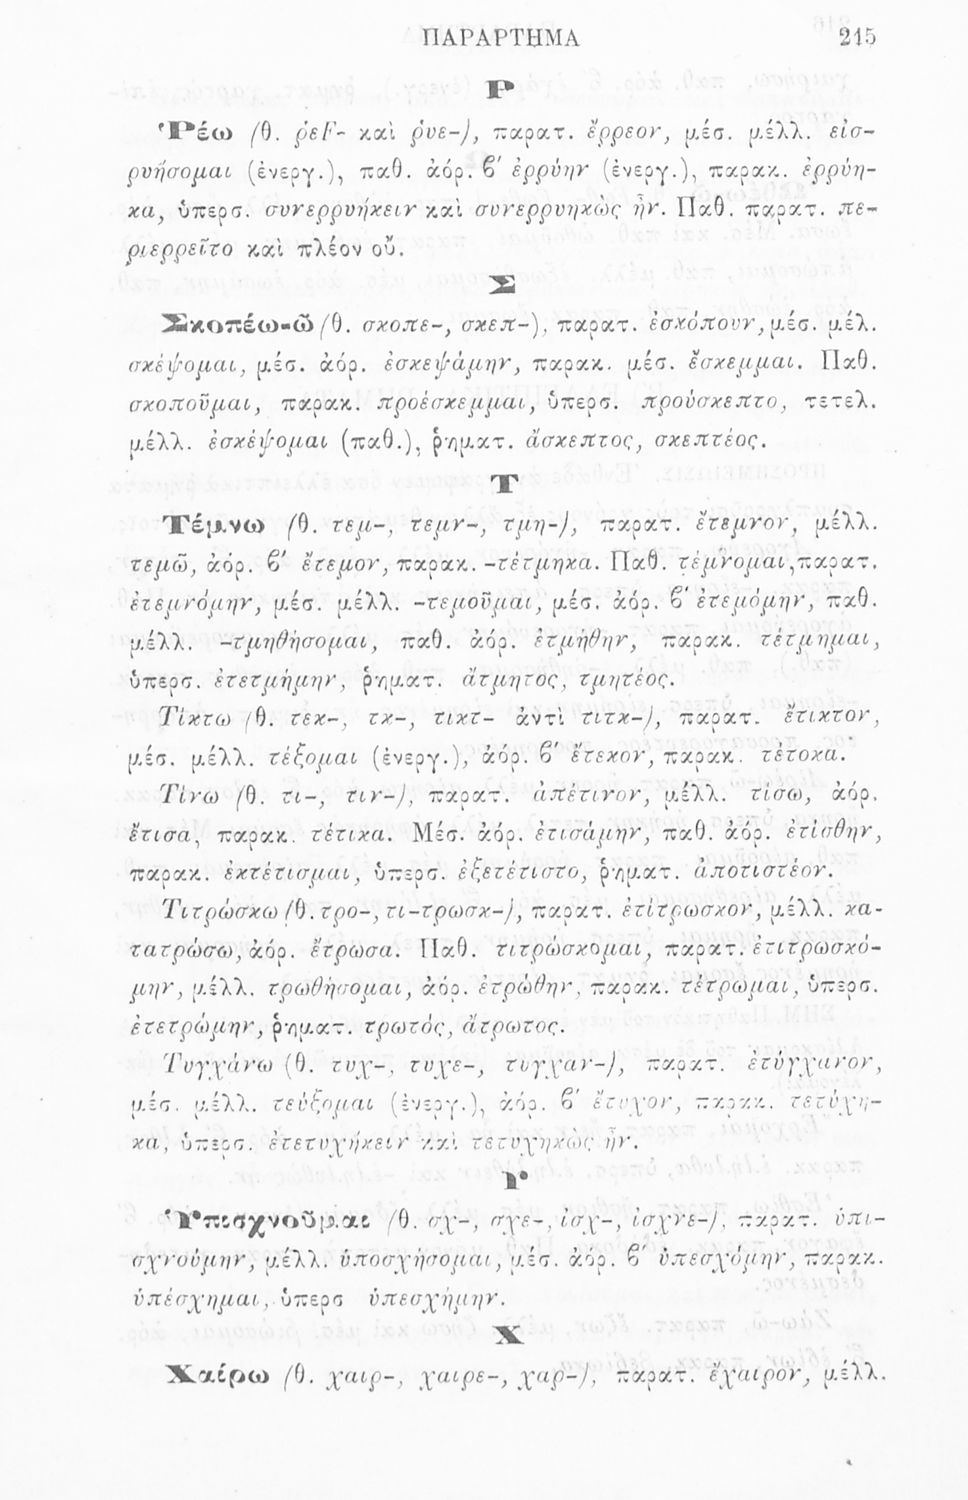 ΠΑΡΑΡΤΗΜΑ 215
Ρ
Ῥέω (θ. ῥεF- καὶ ῥυε-), παρατ. ἔρρεον, μέσ. μέλλ. εἰσ-
ρυήσομαι (ἐνεργ.), παθ. ἀόρ. ϐ′ ἐρρύην (ἐνεργ.), παρακ. ἐρρύη-
κα, ὑπερσ. συνερρυήκειν καὶ συνερρυηκὼς ἦν. Παθ. παρατ. πε-
ριερρεῖτο καὶ πλέον οὔ.
Σ
Σκοπέω-ῶ (θ. σκοπε-, σκεπ-), παρατ. ἐσκόπουν, μέσ. μέλ.
σκέψομαι, μέσ. ἀόρ. ἐσκεψάμην, παρακ. μέσ. ἔσκεμμαι. Παθ.
σκοποῦμαι, παρακ. προέσκεμμαι, ὑπερσ. προὔσκεπτο, τετελ.
μέλλ. ἐσκέψομαι (παθ.), ῥηματ. ἄσκεπτος, σκεπτέος.
Τ
Τέμνω (θ. τεμ-, τεμν-, τμη-), παρατ. ἔτεμνον, μέλλ.
τεμῶ, ἀόρ. ϐ′ ἔτεμον, παρακ. -τέτμηκα. Παθ. τέμνομαι, παρατ.
ἐτεμνόμην, μέσ. μέλλ. -τεμοῦμαι, μέσ. ἀόρ. ϐ′ ἐτεμόμην, παθ.
μέλλ. -τμηθήσομαι, παθ. ἀόρ. ἐτμήθην, παρακ. τέτμημαι,
ὑπερσ. ἐτετμήμην, ῥηματ. ἄτμητος, τμητέος.
Τίκτω (θ. τεκ-, τκ-, τικτ- ἀντὶ τιτκ-), παρατ. ἔτικτον,
μέσ. μέλλ. τέξομαι (ἐνεργ.), ἀόρ. ϐ′ ἔτεκον, παρακ. τέτοκα.
Τίνω (θ. τι-, τιν-), παρατ. ἀπέτινον, μέλλ. τίσω, ἀόρ.
ἔτισα, παρακ. τέτικα. Μέσ. ἀόρ. ἐτισάμην, παθ. ἀόρ. ἐτίσθην,
παρακ. ἐκτέτισμαι, ὑπερσ. ἐξετέτιστο, ῥηματ. ἀποτιστέον.
Τιτρώσκω (θ. τρο-, τι-τρωσκ-), παρατ. ἐτίτρωσκον, μέλλ. κα-
τατρώσω, ἀόρ. ἔτρωσα. Παθ. τιτρώσκομαι, παρατ. ἐτιτρωσκό-
μην, μέλλ. τρωθήσομαι, ἀόρ. ἐτρώθην, παρακ. τέτρωμαι, ὑπερσ.
ἐτετρώμην, ῥηματ. τρωτός, ἄτρωτος.
Τυγχάνω (θ. τυχ-, τυχε-, τυγχαν-), παρατ. ἐτύγχανον,
μέσ. μέλλ. τεύξομαι (ἐνεργ.), ἀόρ. ϐ′ ἔτυχον, παρακ. τετύχη-
κα, ὑπερσ. ἐτετυχήκειν καὶ τετυχηκὼς ἦν.
Υ
Ὑπισχνοῦμαι (θ. σχ-, σχε-, ἰσχ-, ἰσχνε-), παρατ. ὑπι-
σχνούμην, μέλλ. ὑποσχήσομαι, μέσ. ἀόρ. ϐ′ ὑπεσχόμην, παρακ.
ὑπέσχημαι, ὑπερσ ὑπεσχήμην.
Χ
Χαίρω (θ. χαιρ-, χαιρε-, χαρ-), παρατ. ἔχαιρον, μέλλ.